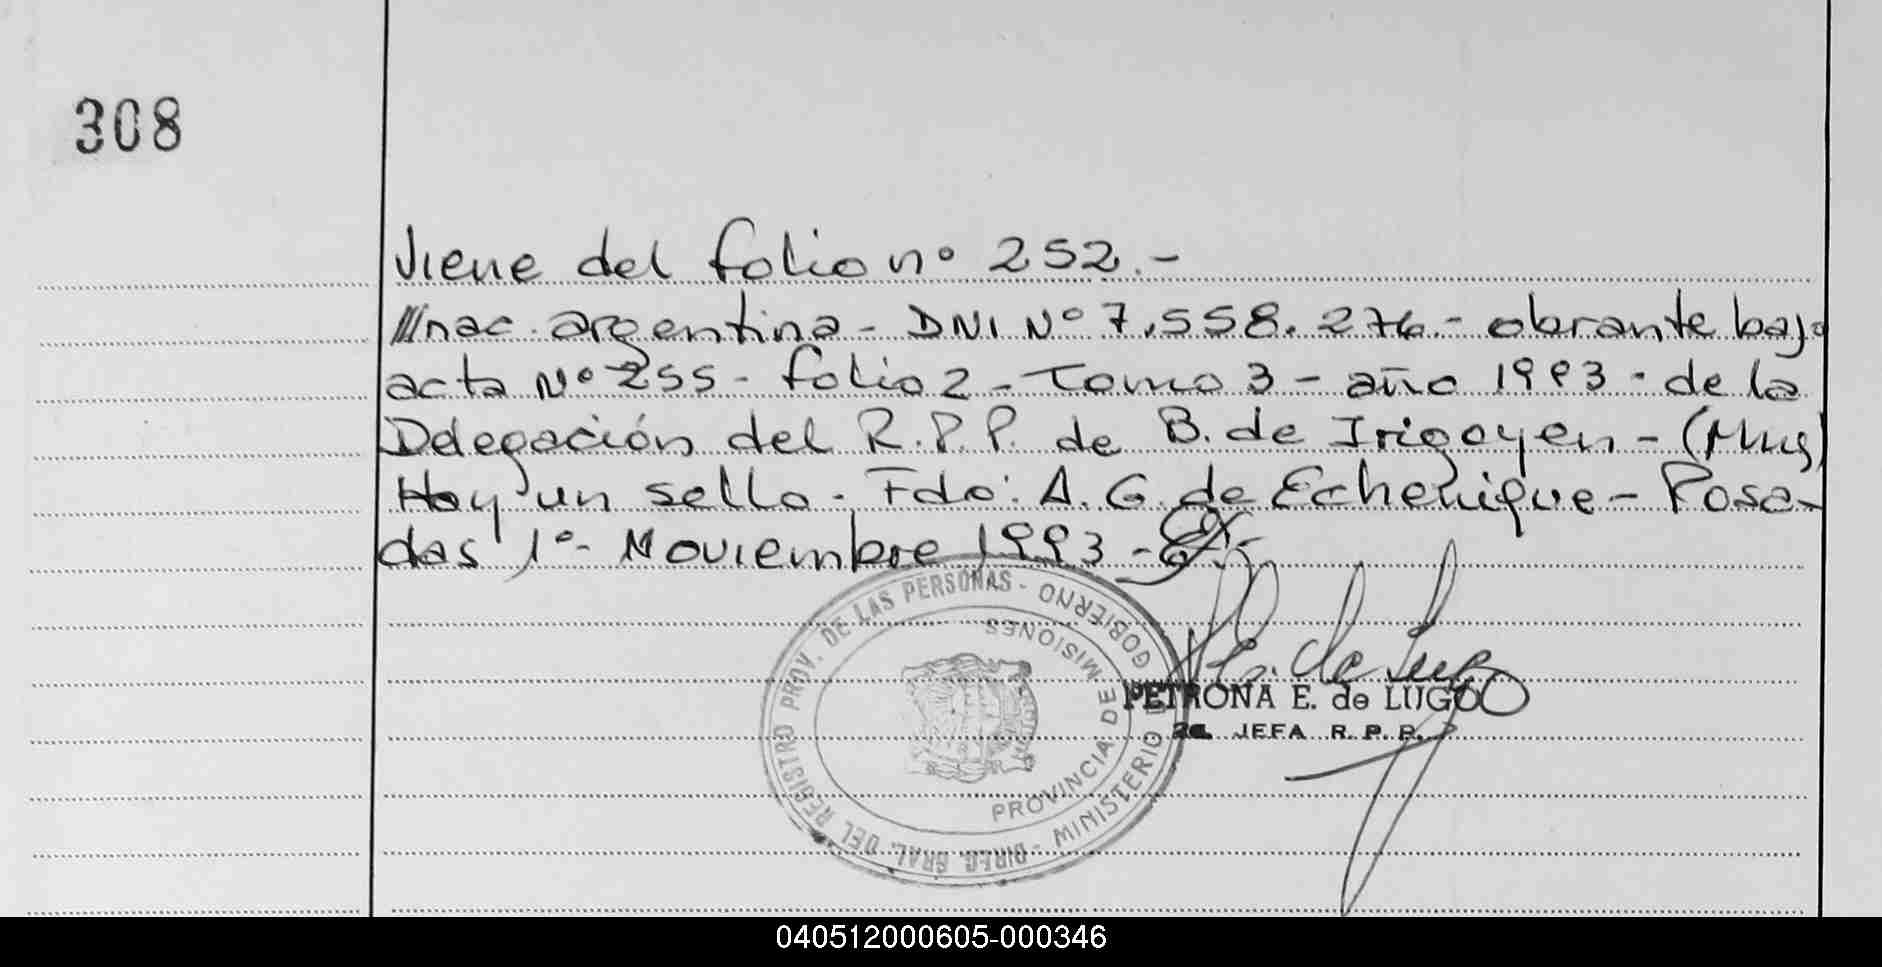 308
Viene del folio nº 252.-
///nac. argentina - DNI Nº 7.558.276.- obrante bajo
acta Nº 255 - folio 2 - Tomo 3 - año 1993 - de la
Delegación del R.P.P. de B. de Irigoyen - (Mns)
Hay un sello - Fdo: A. G. de Echenique - Posa-
das 1º- Noviembre 1993 -
DIREC. GRAL. DEL REGISTRO PROV. DE LAS PERSONAS - MINISTERIO DE GOBIERNO
PROVINCIA DE MISIONES
P. E. de Lugo
PETRONA E. de LUGO
2a. JEFA R. P. P.
040512000605-000346